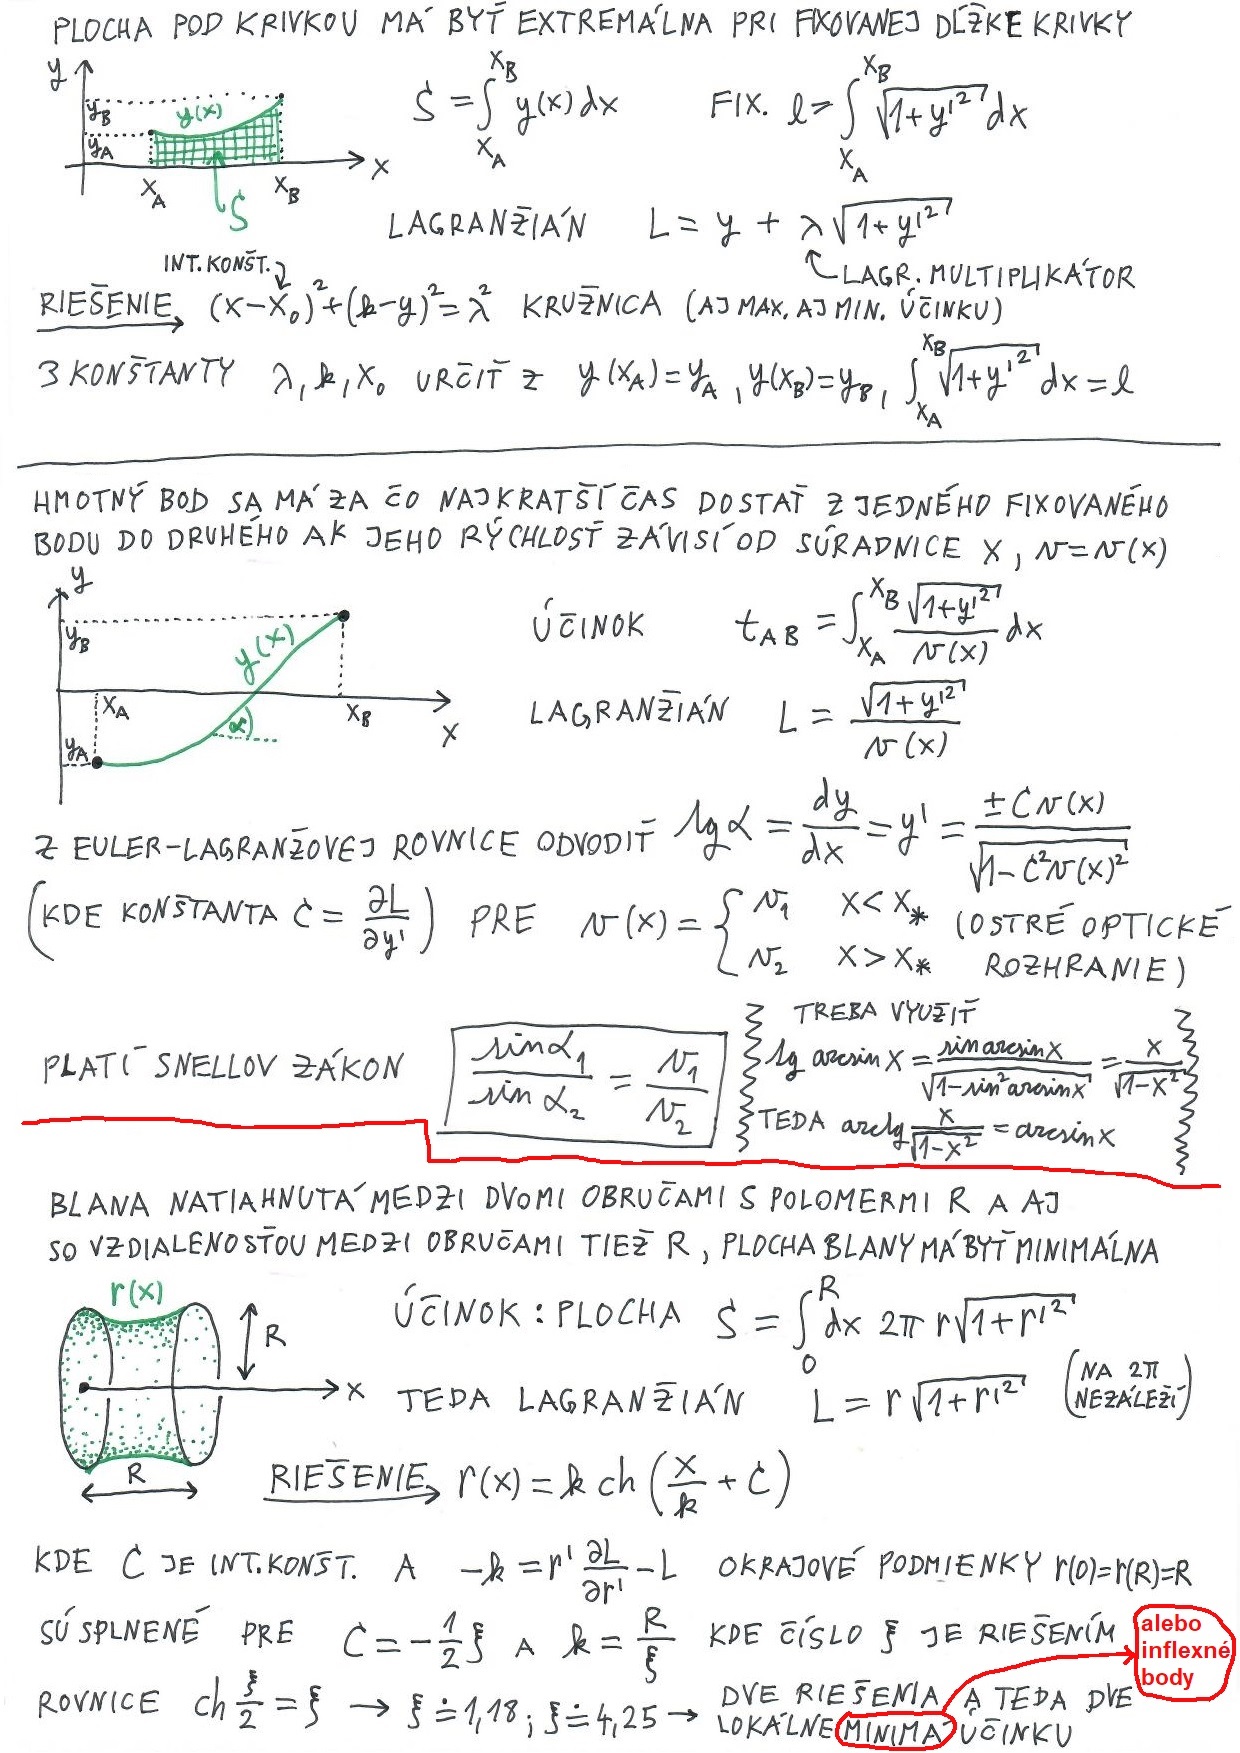 PLOCHA POD KRIVKOU MÁ BYŤ EXTREMÁLNA PRI FIXOVANEJ DĹŽKE KRIVKY
y
y_B
y(x)
y_A
x
x_A
x_B
S
S = ∫_{x_A}^{x_B} y(x) dx
FIX. l = ∫_{x_A}^{x_B} √(1+y'²) dx
LAGRANŽIÁN L = y + λ√(1+y'²)
LAGR. MULTIPLIKÁTOR
INT. KONŠT.
RIEŠENIE (x-x₀)²+(k-y)²=λ² KRUŽNICA (AJ MAX. AJ MIN. ÚČINKU)
3 KONŠTANTY λ, k, x₀ URČIŤ Z y(x_A)=y_A, y(x_B)=y_B, ∫_{x_A}^{x_B} √(1+y'²) dx = l
HMOTNÝ BOD SA MÁ ZA ČO NAJKRATŠÍ ČAS DOSTAŤ Z JEDNÉHO FIXOVANÉHO
BODU DO DRUHÉHO AK JEHO RÝCHLOSŤ ZÁVISÍ OD SÚRADNICE x, v=v(x)
y
y_B
y(x)
x_A
x_B
x
α
y_A
ÚČINOK t_AB = ∫_{x_A}^{x_B} √(1+y'²)/v(x) dx
LAGRANŽIÁN L = √(1+y'²)/v(x)
Z EULER-LAGRANŽOVEJ ROVNICE ODVODIŤ tg α = dy/dx = y' = ±C v(x)/√(1-C²v(x)²)
(KDE KONŠTANTA C = ∂L/∂y') PRE v(x) = { v₁ x < x_* (OSTRÉ OPTICKÉ
v₂ x > x_* ROZHRANIE)
PLATÍ SNELLOV ZÁKON sin α₁/sin α₂ = v₁/v₂
TREBA VYUŽIŤ
tg arcsin x = sin arcsin x/√(1-sin² arcsin x) = x/√(1-x²)
TEDA arctg x/√(1-x²) = arcsin x
BLANA NATIAHNUTÁ MEDZI DVOMI OBRUČAMI S POLOMERMI R A AJ
SO VZDIALENOSŤOU MEDZI OBRUČAMI TIEŽ R, PLOCHA BLANY MÁ BYŤ MINIMÁLNA
r(x)
R
x
R
ÚČINOK: PLOCHA S = ∫_0^R dx 2π r√(1+r'²)
TEDA LAGRANŽIÁN L = r√(1+r'²) (NA 2π NEZÁLEŽÍ)
RIEŠENIE r(x) = k ch(x/k + C)
KDE C JE INT. KONŠT. A -k = r' ∂L/∂r' - L OKRAJOVÉ PODMIENKY r(0)=r(R)=R
SÚ SPLNENÉ PRE C = -1/2 ξ A k = R/ξ KDE ČÍSLO ξ JE RIEŠENÍM
alebo
inflexné
body
ROVNICE ch ξ/2 = ξ → ξ ≐ 1,18 ; ξ ≐ 4,25 → DVE RIEŠENIA A TEDA DVE
LOKÁLNE MINIMÁ ÚČINKU